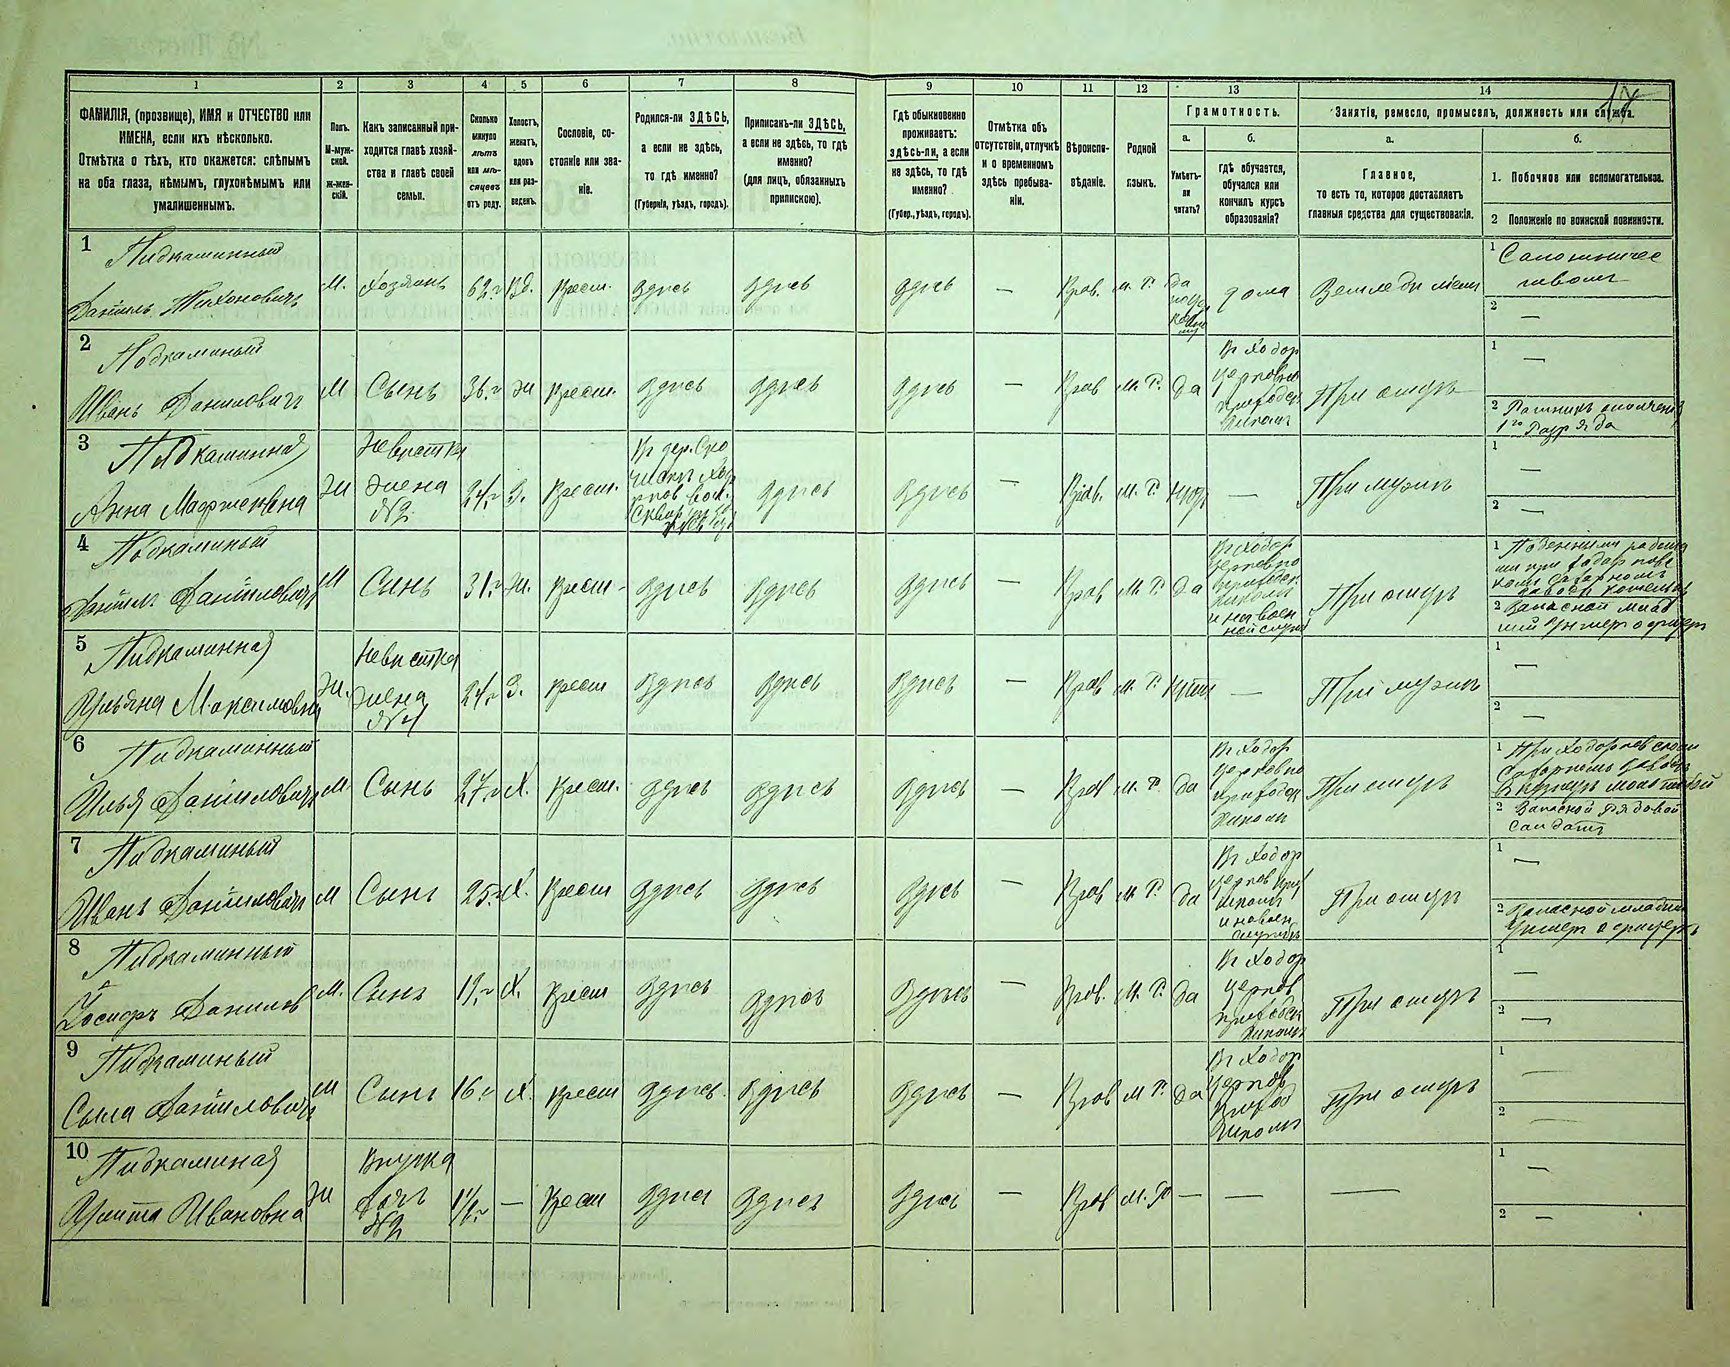 1 2 3 4 5 6 7 8 9 10 11 12 13 14
ФАМИЛІЯ, (прозвище), ИМЯ и ОТЧЕСТВО или
ИМЕНА, если ихъ нѣсколько.
Отмѣтка о тѣхъ, кто окажется: слѣпымъ
на оба глаза, нѣмымъ, глухонѣмымъ или
умалишеннымъ.
Полъ.
М-муж-
ской.
ж-жен-
скій.
Какъ записанный при-
ходится главѣ хозяй-
ства и главѣ своей
семьи.
Сколько
минуло
лѣтъ
или мѣ-
сяцевъ
отъ роду.
Холостъ,
женатъ,
вдовъ
или раз-
веденъ.
Сословіе, со-
стояніе или зва-
ніе.
Родился-ли ЗДѢСЬ,
а если не здѣсь,
то гдѣ именно?
(Губернія, уѣздъ, городъ).
Приписанъ-ли ЗДѢСЬ,
а если не здѣсь, то гдѣ
именно?
(для лицъ, обязанныхъ
припискою).
Гдѣ обыкновенно
проживаетъ:
здѣсь-ли, а если
не здѣсь, то гдѣ
именно?
(Губер., уѣздъ, городъ).
Отмѣтка объ
отсутствіи, отлучкѣ
и о временномъ
здѣсь пребыва-
ніи.
Вѣроиспо-
вѣданіе.
Родной
языкъ.
Грамотность.
а.
Умѣетъ-
ли
читать?
б.
гдѣ обучается,
обучался или
кончилъ курсъ
образованія?
Занятіе, ремесло, промыселъ, должность или служба.
а.
Главное,
то есть то, которое доставляетъ
главныя средства для существованія.
б.
1. Побочное или вспомогательное.
2 Положеніе по воинской повинности.
1 Пидкаминный
Даніилъ Тихоновичъ
М. Хозяинъ 62.г Вд. Крест. Здѣсь Здѣсь Здѣсь — Прав. м. Р. да дома Земледѣліемъ
1
2 —
2 Подкаминый
Иванъ Даниловичъ
М Сынъ 36.г Ж Крест. Здѣсь Здѣсь Здѣсь — Прав м. Р. да
Въ Ходор
церковно
приход
школѣ
При отцѣ
1 —
2 Ратникъ ополченія
1го Разряда
3 Пидкаминная
Анна
Ж Невѣстка
жена
№2
24.г З. Крест. Здѣсь Здѣсь — Прав. М. Р. нѣтъ — При мужѣ
1 —
2 —
4 Подкаминый
Даніилъ Даніиловичъ
М Сынъ 31.г Ж. Крест Здѣсь Здѣсь Здѣсь — Прав М. Р. да
Въ Ходор
церковно
приход
школѣ
и на воен
ной службѣ
При отцѣ
1
2 Запасной млад
шій Унтер офицеръ
5 Пидкаминная
Ульяна Максимовна
Ж. Невѣстка
жена
№4
24.г З. Крест Здѣсь Здѣсь Здѣсь — Прав М. Р. нѣтъ — При мужѣ
1 —
2 —
6 Пидкаминный
Илья Даніиловичъ
М Сынъ 27.г Х. Крест. Здѣсь Здѣсь Здѣсь — Прав М. Р. да
Въ Ходор
церковно
приход
школѣ
При отцѣ
1 При Ходорковском
Сахарномъ заводѣ
2 Запасной Рядовой
Солдатъ
7 Пидкаминый
Иванъ Даніиловичъ
М Сынъ 25.г Х. Крест Здѣсь Здѣсь Здѣсь — Прав М. Р. да
Въ Ходор
церков прих
школѣ
и на воен
службѣ
При отцѣ
1 —
2 Запасной младшій
Унтер офицеръ
8 Пидкаминный
Іосифъ Данилов
М. Сынъ 19.г Х. Крест Здѣсь Здѣсь Здѣсь — Прав. М. Р. да
Въ Ходор
церков
приход
школѣ
При отцѣ
1 —
2 —
9 Пидкаминый
Сыла Даніиловичъ
М Сынъ 16.г Х. Крест Здѣсь Здѣсь Здѣсь — Прав М Р. да
Въ Ходор
церков
приход
школѣ
При отцѣ
1 —
2 —
10 Пидкаминая
Улита Ивановна
Ж Внучка
дочь
№2
— Крест Здѣсь Здѣсь Здѣсь — Прав М. Р — — —
1 —
2 —